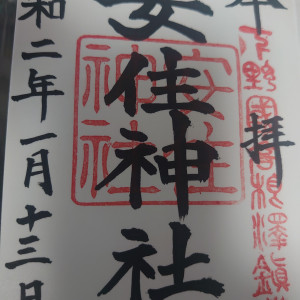 奉拝
下野國都賀
安住神社
安住神社
和二年一月十三日